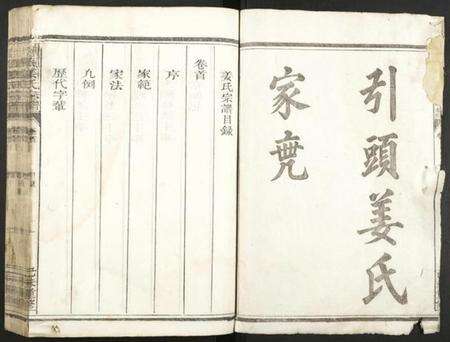 引頭姜氏
家
姜氏宗譜目錄
卷首
序
家範
家法
凡例
歷代字輩